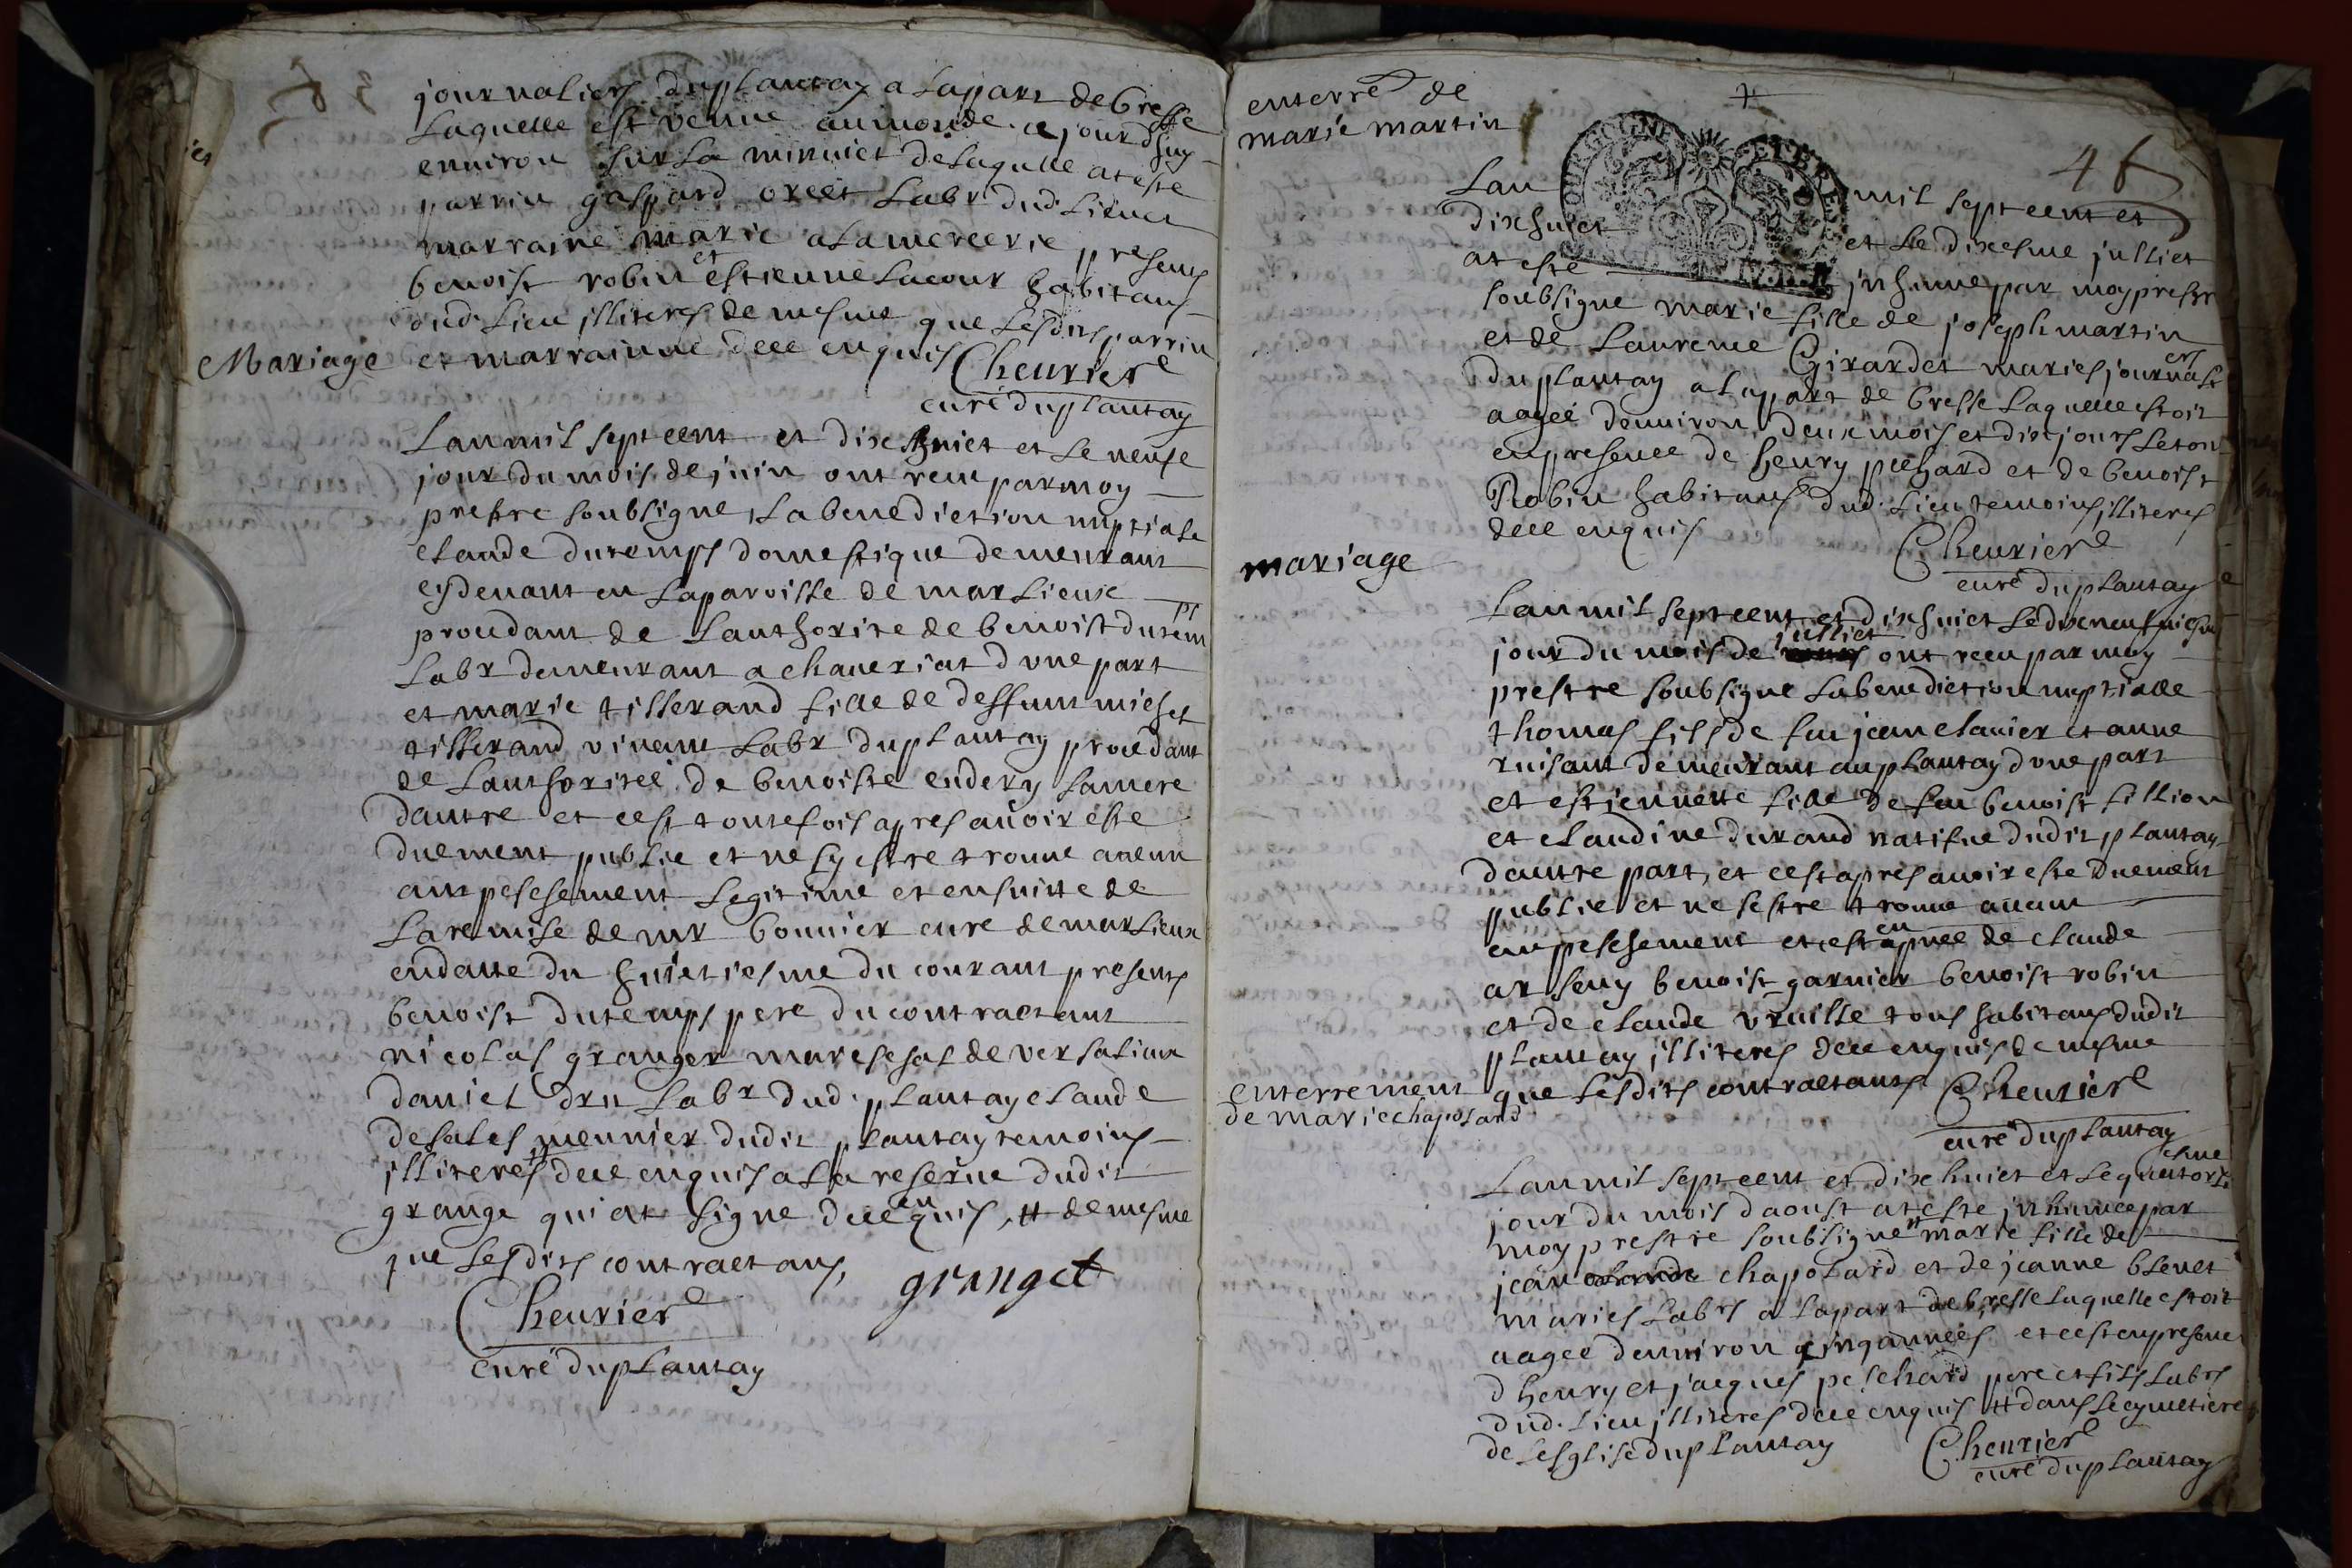 journaliers duplantay a lapart debresse
Laquelle est venue aumonde ce jourdhuy
environ sur la minuict delaquelle at este
parrin gaspard oxeet Labr dud. Lieu et
marraine marie alamercerie presens
benoist robin et estienne Lacour habitans
dud. Lieu jlliteres de mesme que Lesdits parrin
Mariage
et marrainne dece enquis
Cheurier
curé duplantay
Lan mil sept cent et dixhuict et Le neufe
jour du mois de juin ont receu par moy
prestre soubsigne Labenediction nuptiale
claude dutemps domestique demeurant
cy devant en Laparoisse de marlieux
procedant de Lauthorite de benoist dutemps
Labr demeurant a chaveriat dune part
et marie tisserand fille de deffunt michel
tisserand vivant Labr duplantay procedant
de Lauthoritée de benoiste endery samere
dautre et cest toutefois apres avoir este
duement publie et ne sy estre trouve aucun
anpeschement Legitime et ensuitte de
Laremise de mr bonnier cure demarlieux
endatte du huictiesme du courant presents
benoist dutemps pere du contractant
nicolas granger mareschal de versalieux
daniel dru Labr dud. plantay claude
desales meunier dudit plantay temoins
jlliteres dece enquis ala reserve dudit
grange qui at signe dece enquis, # de mesme
que Lesdits contractans,
granget
Cheurier
curé duplantay
enterré de
marie martin
46
Lan mil sept cent et
dixhuict et Le dixesme julliet
at este jnhumé par moy prestre
soubsigne marie fille de joseph martin
et de Laurence Girardet maries journaliers
duplantay a lapart de bresse Laquelle estoit
aagée denviron deux mois et dix jours Letout
enpresence de henry pechard et de benoist
Robin habitans dud. Lieu temoins jlliteres
dece enquis
Cheurier
curé duplantay
mariage
Lan mil sept cent et dixhuict Ledixneufviesme
jour du mois de julliet ont receu par moy
prestre soubsigne Labenediction nuptialle
thomas fils de feu jean clavier et anne
ruisant demeurant auplantay dune part
et estiennette fille de feu benoist fillion
et claudine durand natifve dudit plantay
dautre part, et cest apres avoir este duement
publie et ne sestre trouve aucun
anpeschement et cest en pnce de claude
arseny benoist garnier benoist robin
et de claude vruille tous habitans dudit
plantay jlliteres dece enquis de mesme
que Lesdits contractans
Cheurier
curé duplantay
enterrement
de marie chapolard
Lan mil sept cent et dixhuict et Lequatorzesme
jour du mois daoust at este jnhumée par
moy prestre soubsigne # marie fille de
jean chapolard et de jeanne blenet
maries Labrs a lapart debresse laquelle estoit
aagée denviron cinq années et cest enpresence
dhenry et jacques peschard pere et fils Labrs
dud. Lieu jlliteres dece enquis # dans Lecymetiere
de Lesglise duplantay
Cheurier
curé duplantay